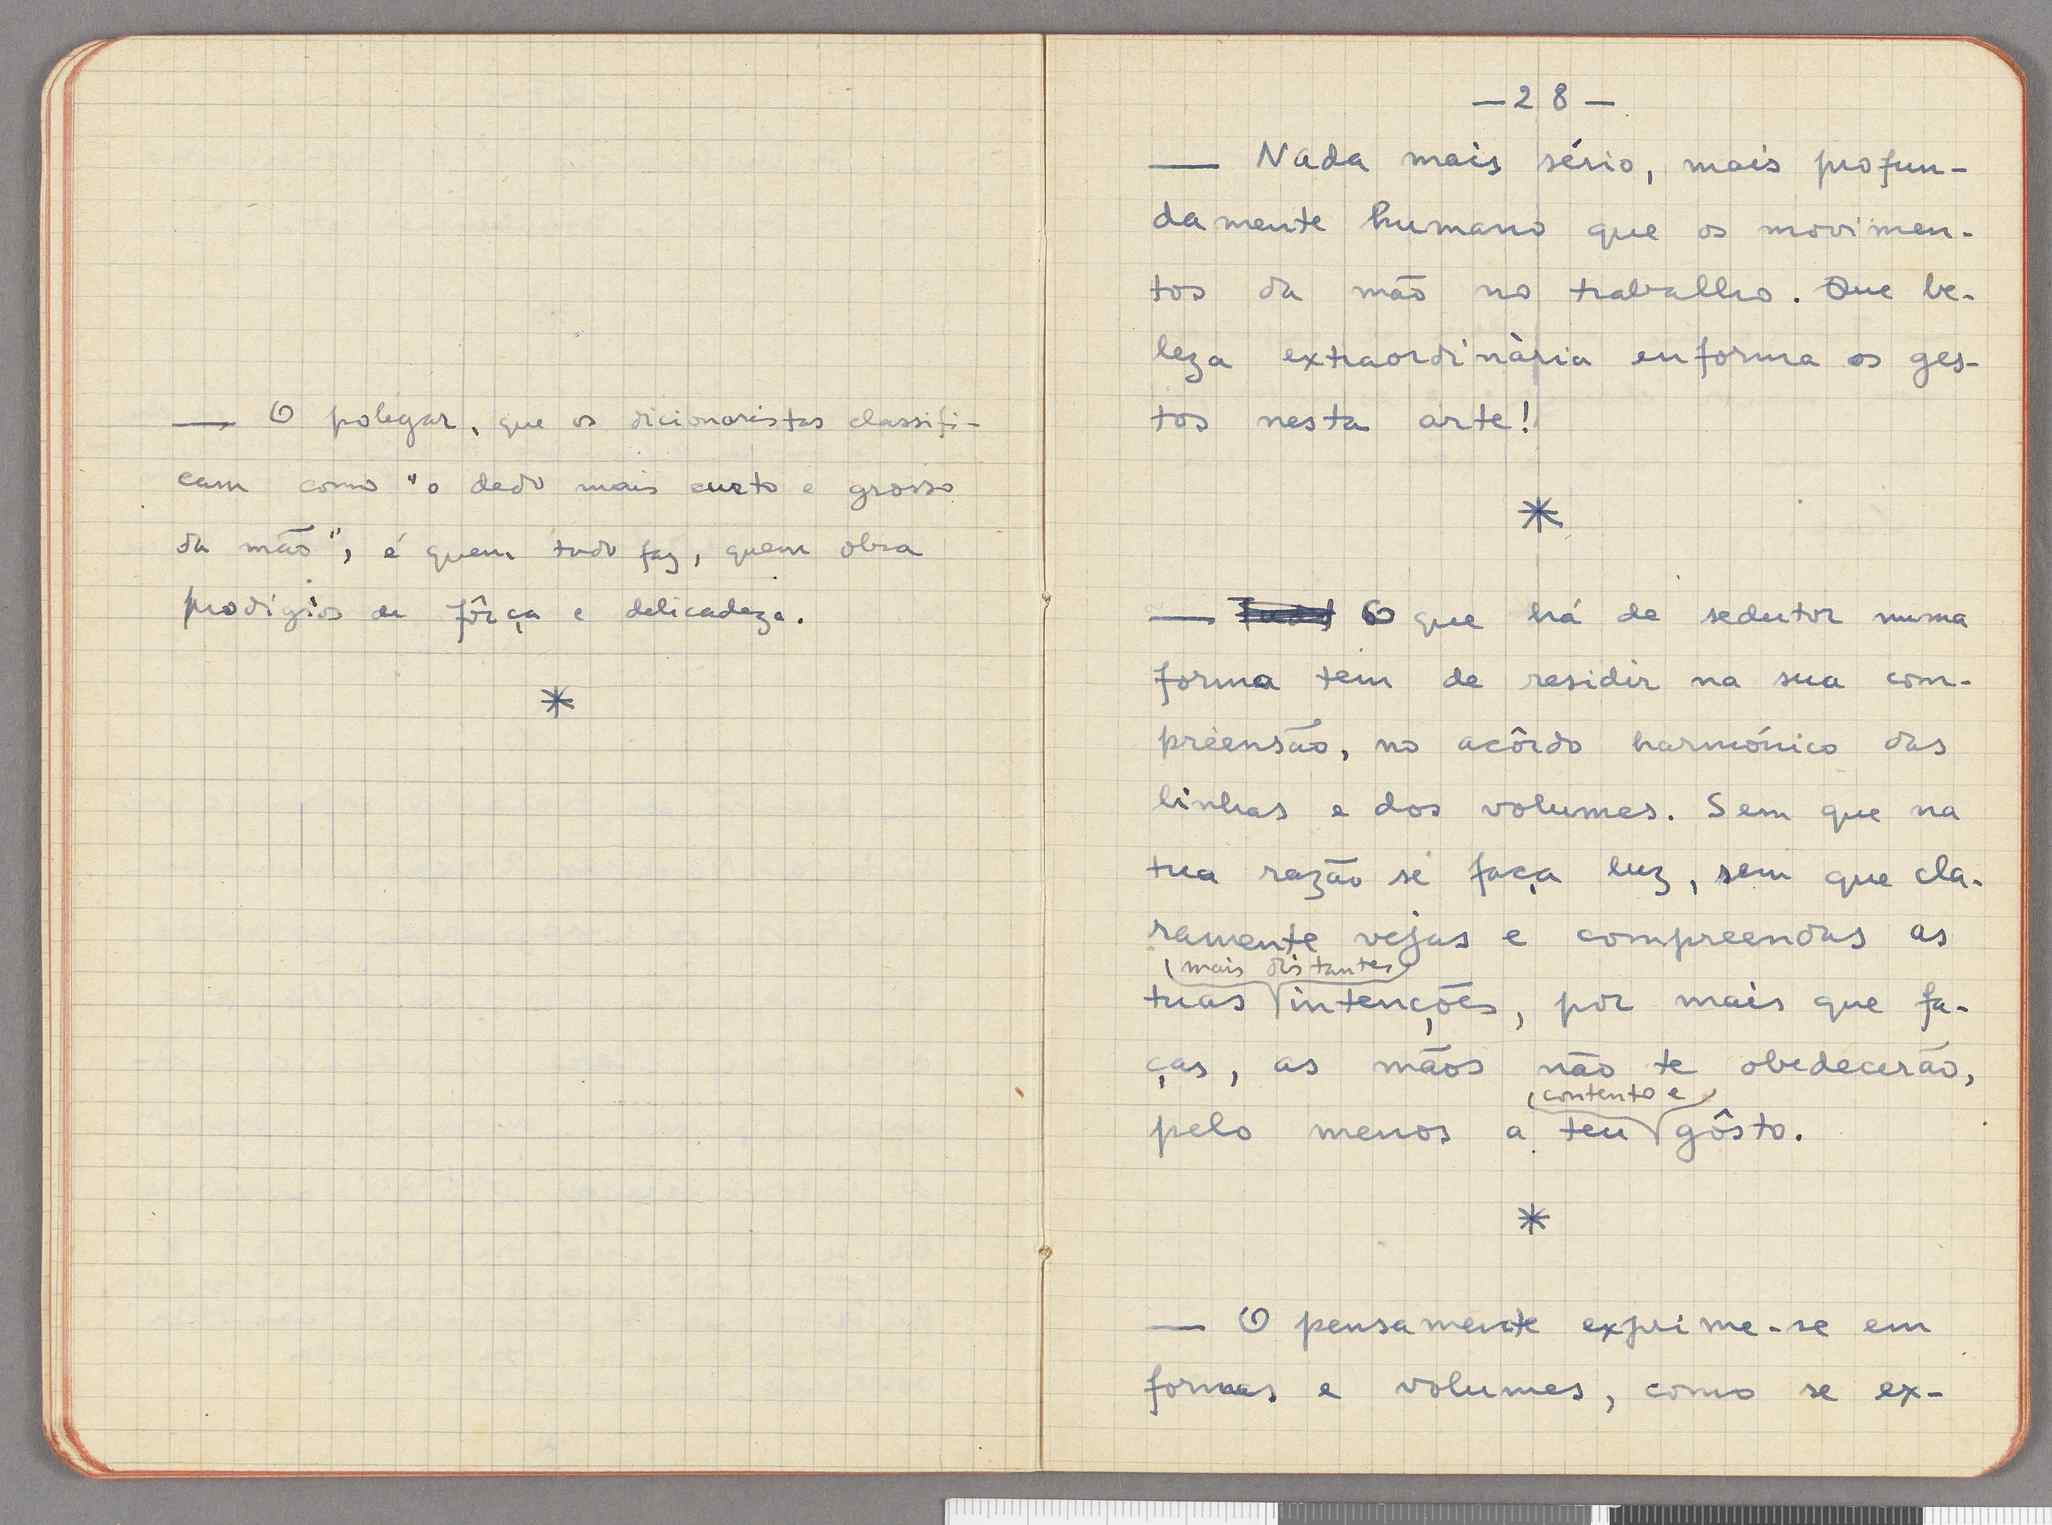 — O polegar, que os dicionaristas classifi-
cam como "o dedo mais curto e grosso
da mão", é quem tudo faz, quem obra
prodígios de fôrça e delicadeza.
*
— 28 —
— Nada mais sério, mais profun-
damente humano que os movimen-
tos da mão no trabalho. Que be-
leza extraordinària enforma os ges-
tos nesta arte!
*
— O que há de sedutor numa
forma tem de residir na sua com-
preensão, no acôrdo harmónico das
linhas e dos volumes. Sem que na
tua razão se faça luz, sem que cla-
ramente vejas e compreendas as
mais distantes
tuas intenções, por mais que fa-
ças, as mãos não te obedecerão,
contento e
pelo menos a teu gôsto.
*
— O pensamento exprime-se em
formas e volumes, como se ex-